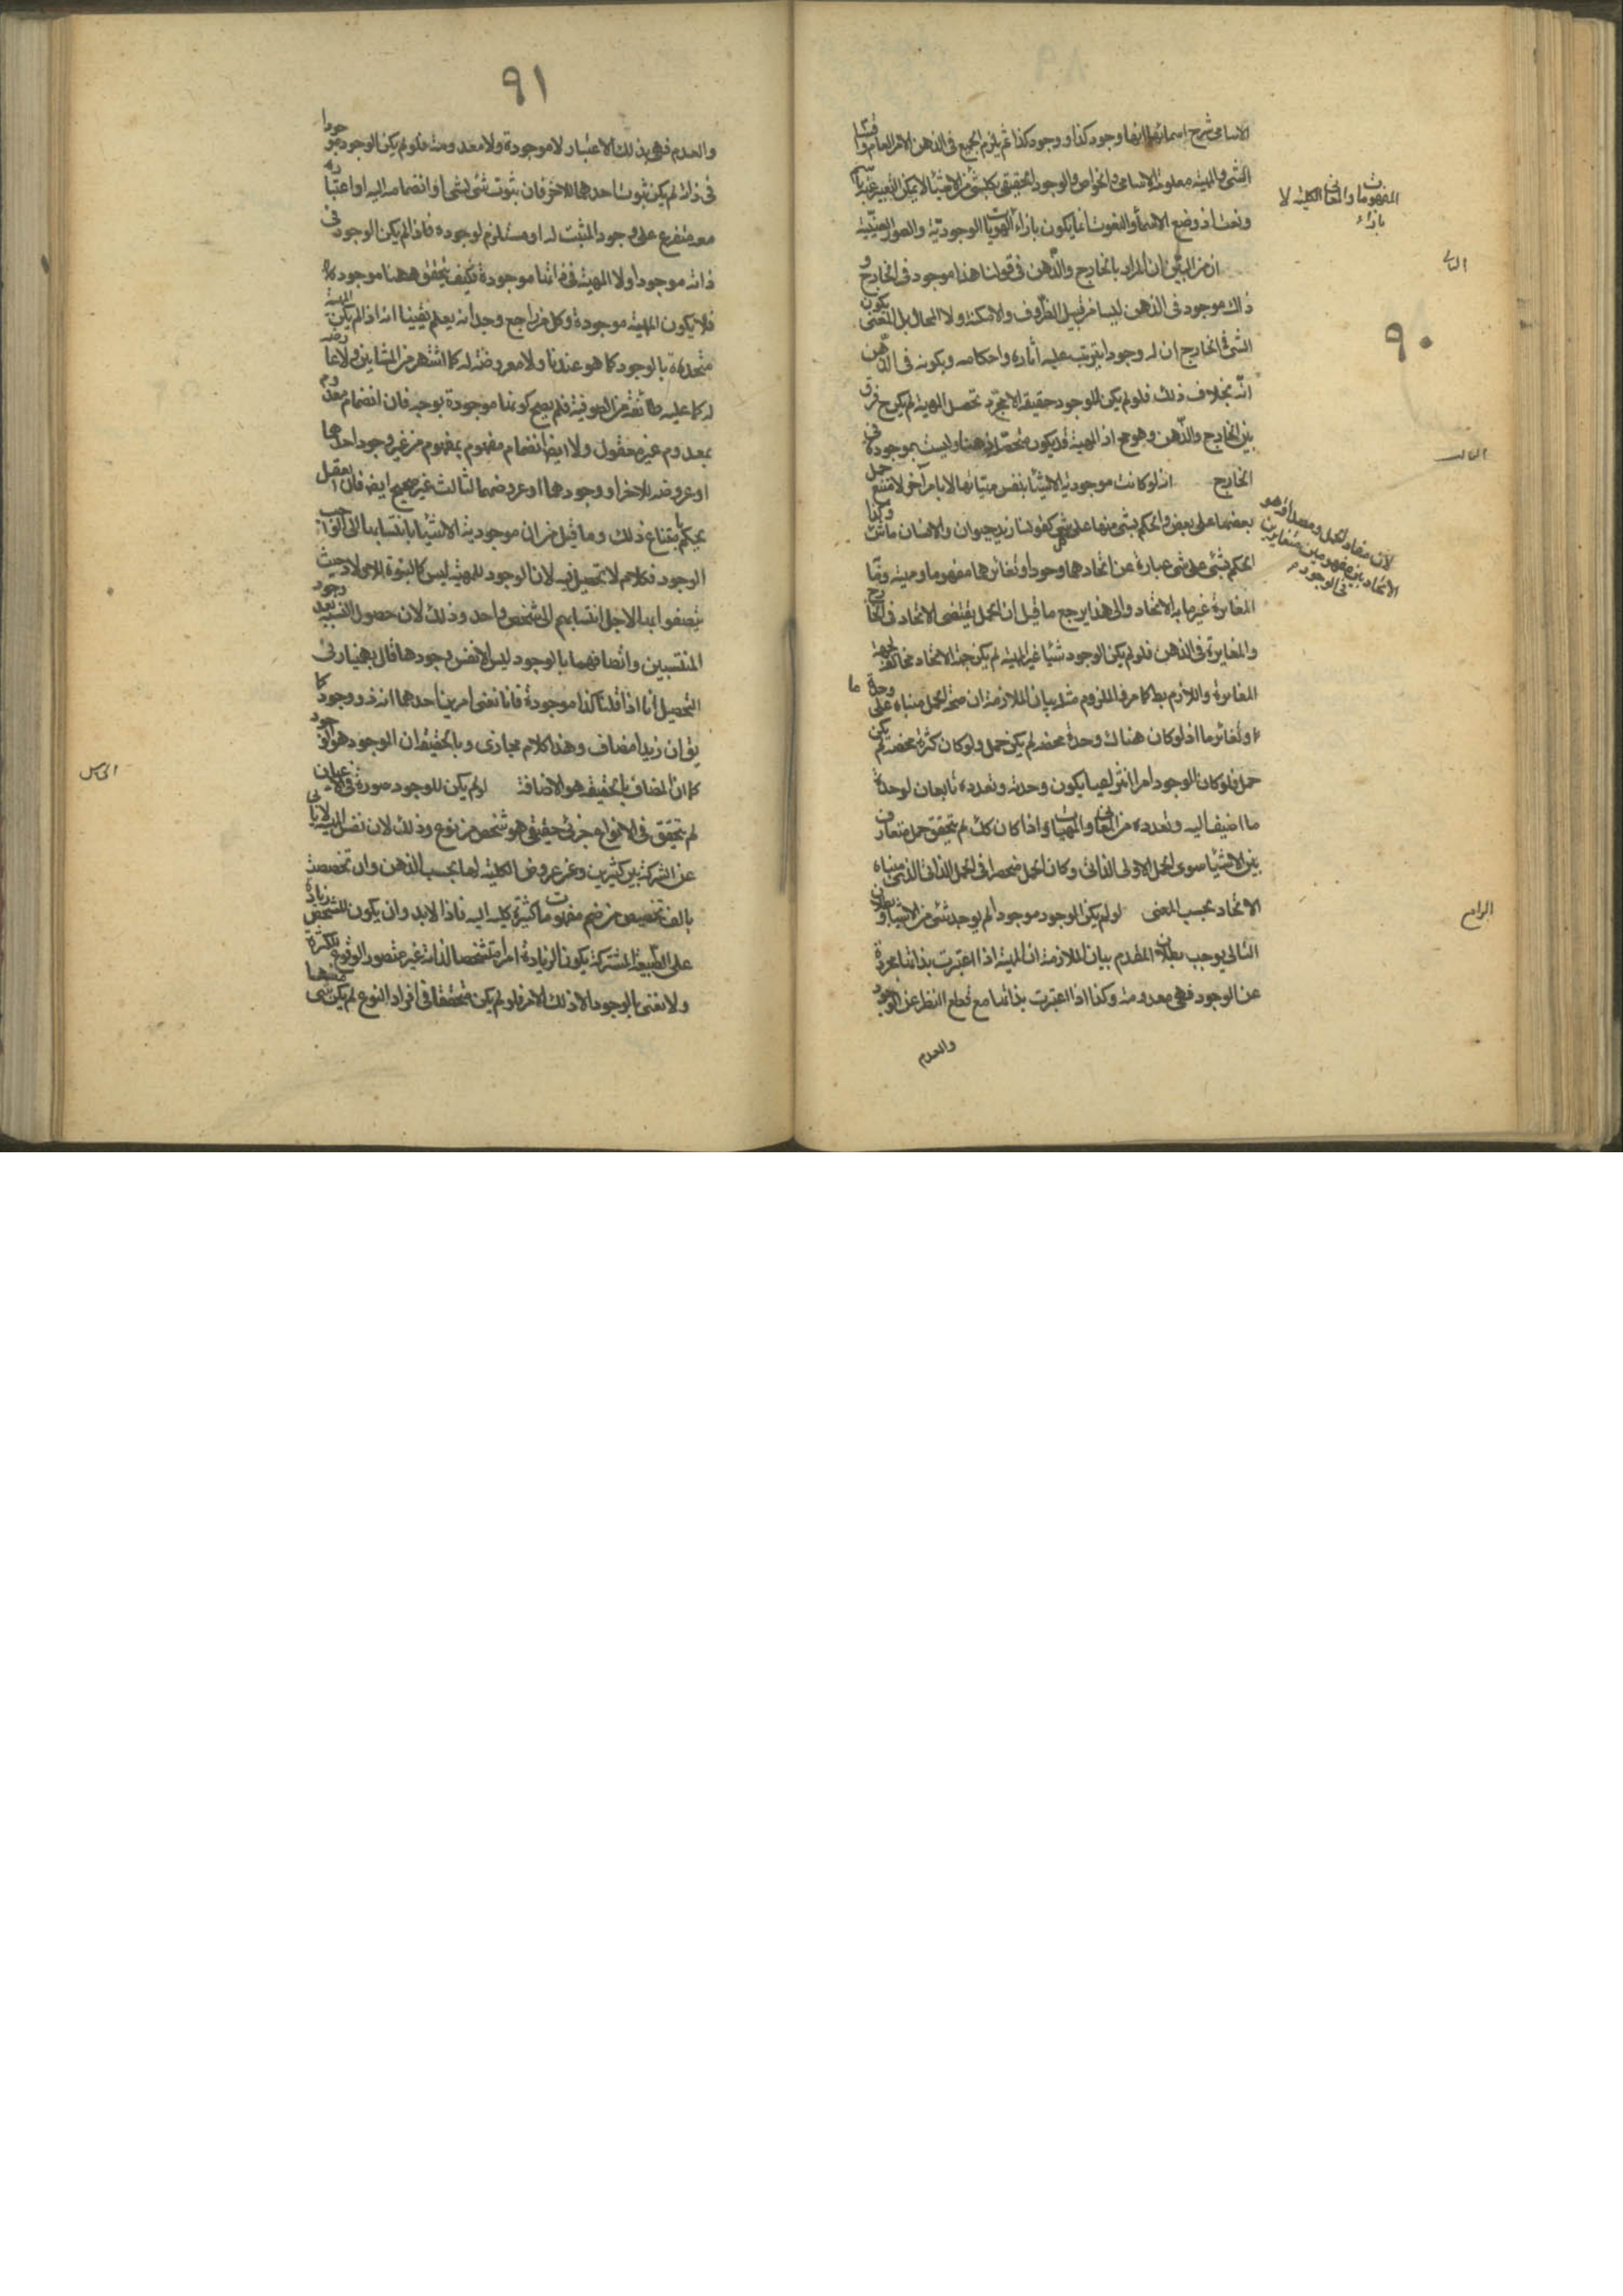 ٩٠
الاسامى شرح اسمائها انها وجود كذا ووجود كذا ثم يلزم الجميع فى الذهن الامر العام واقسام
الشئ والمهية معلومة الاسامى والخواص والوجود الحقيقى لكل شئ من الاشياء لا يمكن التعبير عنه باسم
ونعت اذ وضع الاسماء والنعوت انما يكون بازاء
المفهومات والمعانى الكلية لا بازاء
الهويات الوجودية والصور العينية
الثانى
ان من البين ان المراد بالخارج والذهن فى قولنا هذا موجود فى الخارج و
ذاك موجود فى الذهن ليسا من قبيل الظروف والامكنة ولا المحال بل المعنى بكون
الشئ فى الخارج ان له وجودا يترتب عليه آثاره واحكامه وبكونه فى الذهن
انه بخلاف ذلك فلو لم يكن للوجود حقيقة الا مجرد تحصل المهية لم يكن ح فرق
بين الخارج والذهن وهو مح اذ المهية قد يكون متحصلة ذهنا وليست بموجودة فى
الخارج
الثالث
انه لو كانت موجودية الاشياء بنفس مهياتها لا بامر آخر لامتنع حمل
بعضها على بعض والحكم بشئ منها على شئ كقولنا زيد حيوان والانسان ماش
لان مفاد الحمل ومصداقه هو
الاتحاد بين مفهومين متغايرين
فى الوجود
وكذا
الحكم بشئ على شئ عبارة عن اتحادهما وجودا وتغايرهما مفهوما ومهية وما به
المغايرة غير ما به الاتحاد والى هذا يرجع ما قيل ان الحمل يقتضى الاتحاد فى الخارج
والمغايرة فى الذهن فلو لم يكن الوجود شيئا غير المهية لم يكن جهة الاتحاد مخالفة لجهة
المغايرة واللازم بط كما مر فالملزوم مثله بيان الملازمة ان صحة الحمل مبناه على وحدة ما
وتغاير ما اذ لو كان هناك وحدة محضة لم يكن حمل ولو كان كثرة محضة لم يكن
حمل فلو كان الوجود امرا انتزاعيا يكون وحدته وتعدده تابعان لوحدة
ما اضيف اليه وتعدده من المعانى والمهيات واذا كان كك لم يتحقق حمل متعارف
بين الاشياء سوى الحمل الاولى الذاتى وكان الحمل منحصرا فى الحمل الذاتى الذى مبناه
الاتحاد بحسب المعنى
الرابع
لو لم يكن الوجود موجودا لم يوجد شئ من الاشياء وبطلان
التالى يوجب بطلان المقدم بيان الملازمة ان المهية اذا اعتبرت بذاتها مجردة
عن الوجود فهى معدومة وكذا اذا اعتبرت بذاتها مع قطع النظر عن الوجود
والعدم
٩١
والعدم فهى بذلك الاعتبار لا موجودة ولا معدومة فلو لم يكن الوجود موجودا
فى ذاته لم يكن ثبوت احدهما للآخر فان ثبوت شئ لشئ او انضمامه اليه او اعتباره
معه متفرع على وجود المثبت له او مستلزم لوجوده فاذا لم يكن الوجود فى
ذاته موجودا ولا المهية فى ذاتها موجودة فكيف يتحقق ههنا موجود
فلا يكون المهية موجودة وكل من راجع وجدانه يعلم يقينا انه اذا لم يكن المهية
متحدة بالوجود كما هو عندنا ولا معروضة له كما اشتهر من المشائين ولا عارضة
له كما عليه طائفة من الصوفية فلم يصح كونها موجودة بوجه فان انضمام معدوم
بمعدوم غير معقول ولا ايضا انضمام مفهوم بمفهوم من غير وجود احدهما
او عروضه للآخر او وجودهما او عروضهما لثالث غير صحيح ايضا فان العقل
يحكم بامتناع ذلك وما قيل من ان موجودية الاشياء بانتسابها الى الواجب
الوجود فكلام لا تحصيل فيه لان الوجود للمهية ليس كالبنوة للاولاد حيث
يتصفوا بها لاجل انتسابهم الى شخص واحد وذلك لان حصول النسبة بعد وجود
المنتسبين واتصافهما بالوجود ليس الا نفس وجودها قال بهمنيار فى
التحصيل انا اذا قلنا كذا موجود فانا نعنى امرين احدهما انه ذو وجود كما
يق ان زيدا مضاف وهذا كلام مجازى وبالحقيقة ان الموجود هو الوجود
كما ان المضاف بالحقيقة هو الاضافة
الخامس
لو لم يكن للوجود صورة فى الاعيان
لم يتحقق فى الانواع جزئى حقيقى هو شخص من نوع وذلك لان نفس المهية لا يابى
عن الشركة بين كثيرين وعن عروض الكلية لها بحسب الذهن وان تخصصت
بالف تخصيص من ضم مفهومات كثيرة كلية اليه فاذا لابد وان يكون للشخص زيادة
على الطبيعة المشتركة يكون الزيادة امرا متشخصا لذاته غير متصور الوقوع للكثرة
ولا نعنى بالوجود الا ذلك الامر فلو لم يكن متحققا فى افراد النوع لم يكن شئ منها